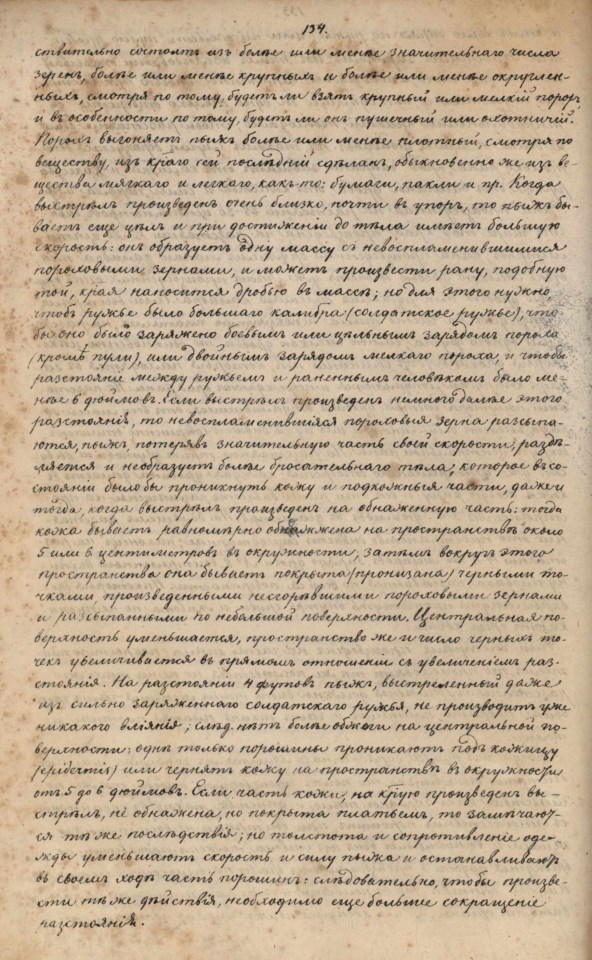 134.
ствительно состоятъ изъ болѣе или менѣе значительнаго числа
зеренъ, болѣе или менѣе крупныхъ и болѣе или менѣе округлен-
ныхъ, смотря по тому, будетъ ли взятъ крупный или мелкій порохъ
и въ особенности по тому, будетъ ли онъ пушечный или охотничій.
Порохъ выгоняетъ пыжъ болѣе или менѣе плотный, смотря по
веществу, изъ кꙋраго сей послѣдній сдѣланъ, обыкновенно же изъ ве-
щества мягкаго и легкаго, какъ-то: бумаги, пакли и пр. Когда
выстрѣлъ произведенъ очень близко, почти въ упоръ, то пыжъ бы-
ваетъ еще цѣлъ и при достиженіи до тѣла имѣетъ большую
скорость: онъ образуетъ одну массу съ невоспламенившимися
пороховыми зернами, и можетъ произвести рану, подобную
той, края наносится дробью въ массѣ; но для этого нужно,
чтобъ ружье было большаго калибра (солдатское ружье), что-
бы оно было заряжено боевымъ или цѣльнымъ зарядомъ пороха
(кромѣ пули), или двойнымъ зарядомъ мелкаго пороха, и чтобы
разстояніе между ружьемъ и раненнымъ человѣкомъ было ме-
нѣе 6 дюймовъ. Если выстрѣлъ произведенъ немного далѣе этого
разстоянія, то невоспламенившіяся пороховыя зерна разсыпа-
ются, пыжъ, потерявъ значительную часть своей скорости, раздѣ-
ляется и необразуетъ болѣе бросательнаго тѣла, которое въ со-
стояніи было бы проникнуть кожу и подкожныя части, даже и
тогда, когда выстрѣлъ произведенъ на обнаженную часть: тогда
кожа бываетъ равномѣрно обожжена на пространствѣ около
5 или 6 центиметровъ въ окружности; затѣмъ вокругъ этого
пространства она бываетъ покрыта (пронизана) черными то-
чками произведенными несгорѣвшими пороховыми зернами
и разсыпанными по небольшой поверхности. Центральная по-
верхность уменьшается, пространство же и число черныхъ то-
чекъ увеличивается въ прямомъ отношеніи съ увеличеніемъ раз-
стоянія. На разстояніи 4 футовъ пыжъ, выстреленный даже
изъ сильно заряженнаго солдатскаго ружья, не производитъ уже
никакого вліянія; слѣд. нѣтъ болѣе обжоги на центральной по-
верхности: однѣ только порошины проникаютъ подъ кожицу
(epidermis) или чернятъ кожу на пространствѣ въ окружности
отъ 5 до 6 дюймовъ. Если часть кожи, на кꙋрую произведенъ вы-
стрѣлъ, не обнажена, но покрыта платьемъ, то замѣчают-
ся тѣ же послѣдствія; но толстота и сопротивленіе оде-
жды уменьшаютъ скорость и силу пыжа и останавливаютъ
въ своемъ ходѣ часть порошинъ: слѣдовательно, чтобы произве-
сти тѣ же дѣйствія, необходимо еще большее сокращеніе
разстоянія.